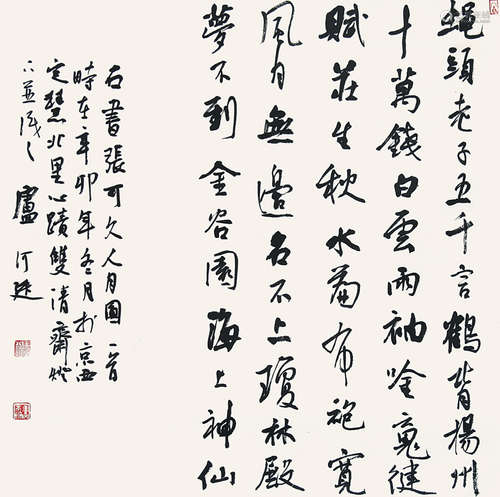 蠅頭老子五千言鶴背楊州
十萬錢白雲兩袖吟魂健
賦莊生秋水篇布袍寬
風月無邊名不上瓊林殿
夢不到金谷園海上神仙
右書張可久人月圓一首
時在辛卯年冬月於京西
定慧北里心蹟雙清齋燈
下並識之 盧